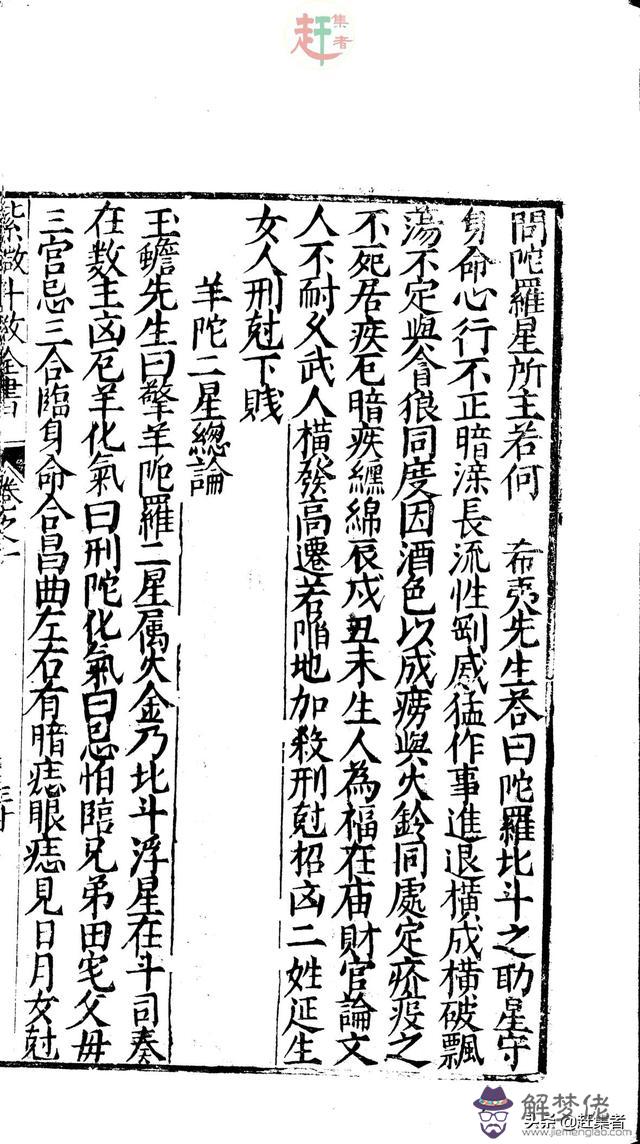 赶集者
問陀羅星所主若何　希夷先生荅曰陀羅北斗之助星守
身命心行不正暗淚長流性剛威猛作事進退橫成橫破飄
蕩不定與貪狼同度因酒色以成癆與火鈴同處定疥疫之
不死居疾厄暗疾纏綿辰戌丑未生人為福在庙財官論文
人不耐久武人橫發高遷若陷地加殺刑尅招凶二姓延生
女人刑尅下賤
羊陀二星總論
玉蟾先生曰擎羊陀羅二星属火金乃北斗浮星在斗司奏
在数主凶厄羊化氣曰刑陀化氣曰忌怕臨兄弟田宅父母
三宫忌三合臨身命合昌曲左右有暗痣眼痣見日月女尅
紫微斗数全書　卷之一
三十
解梦佬
www.jiemenglab.com
头条@赶集者